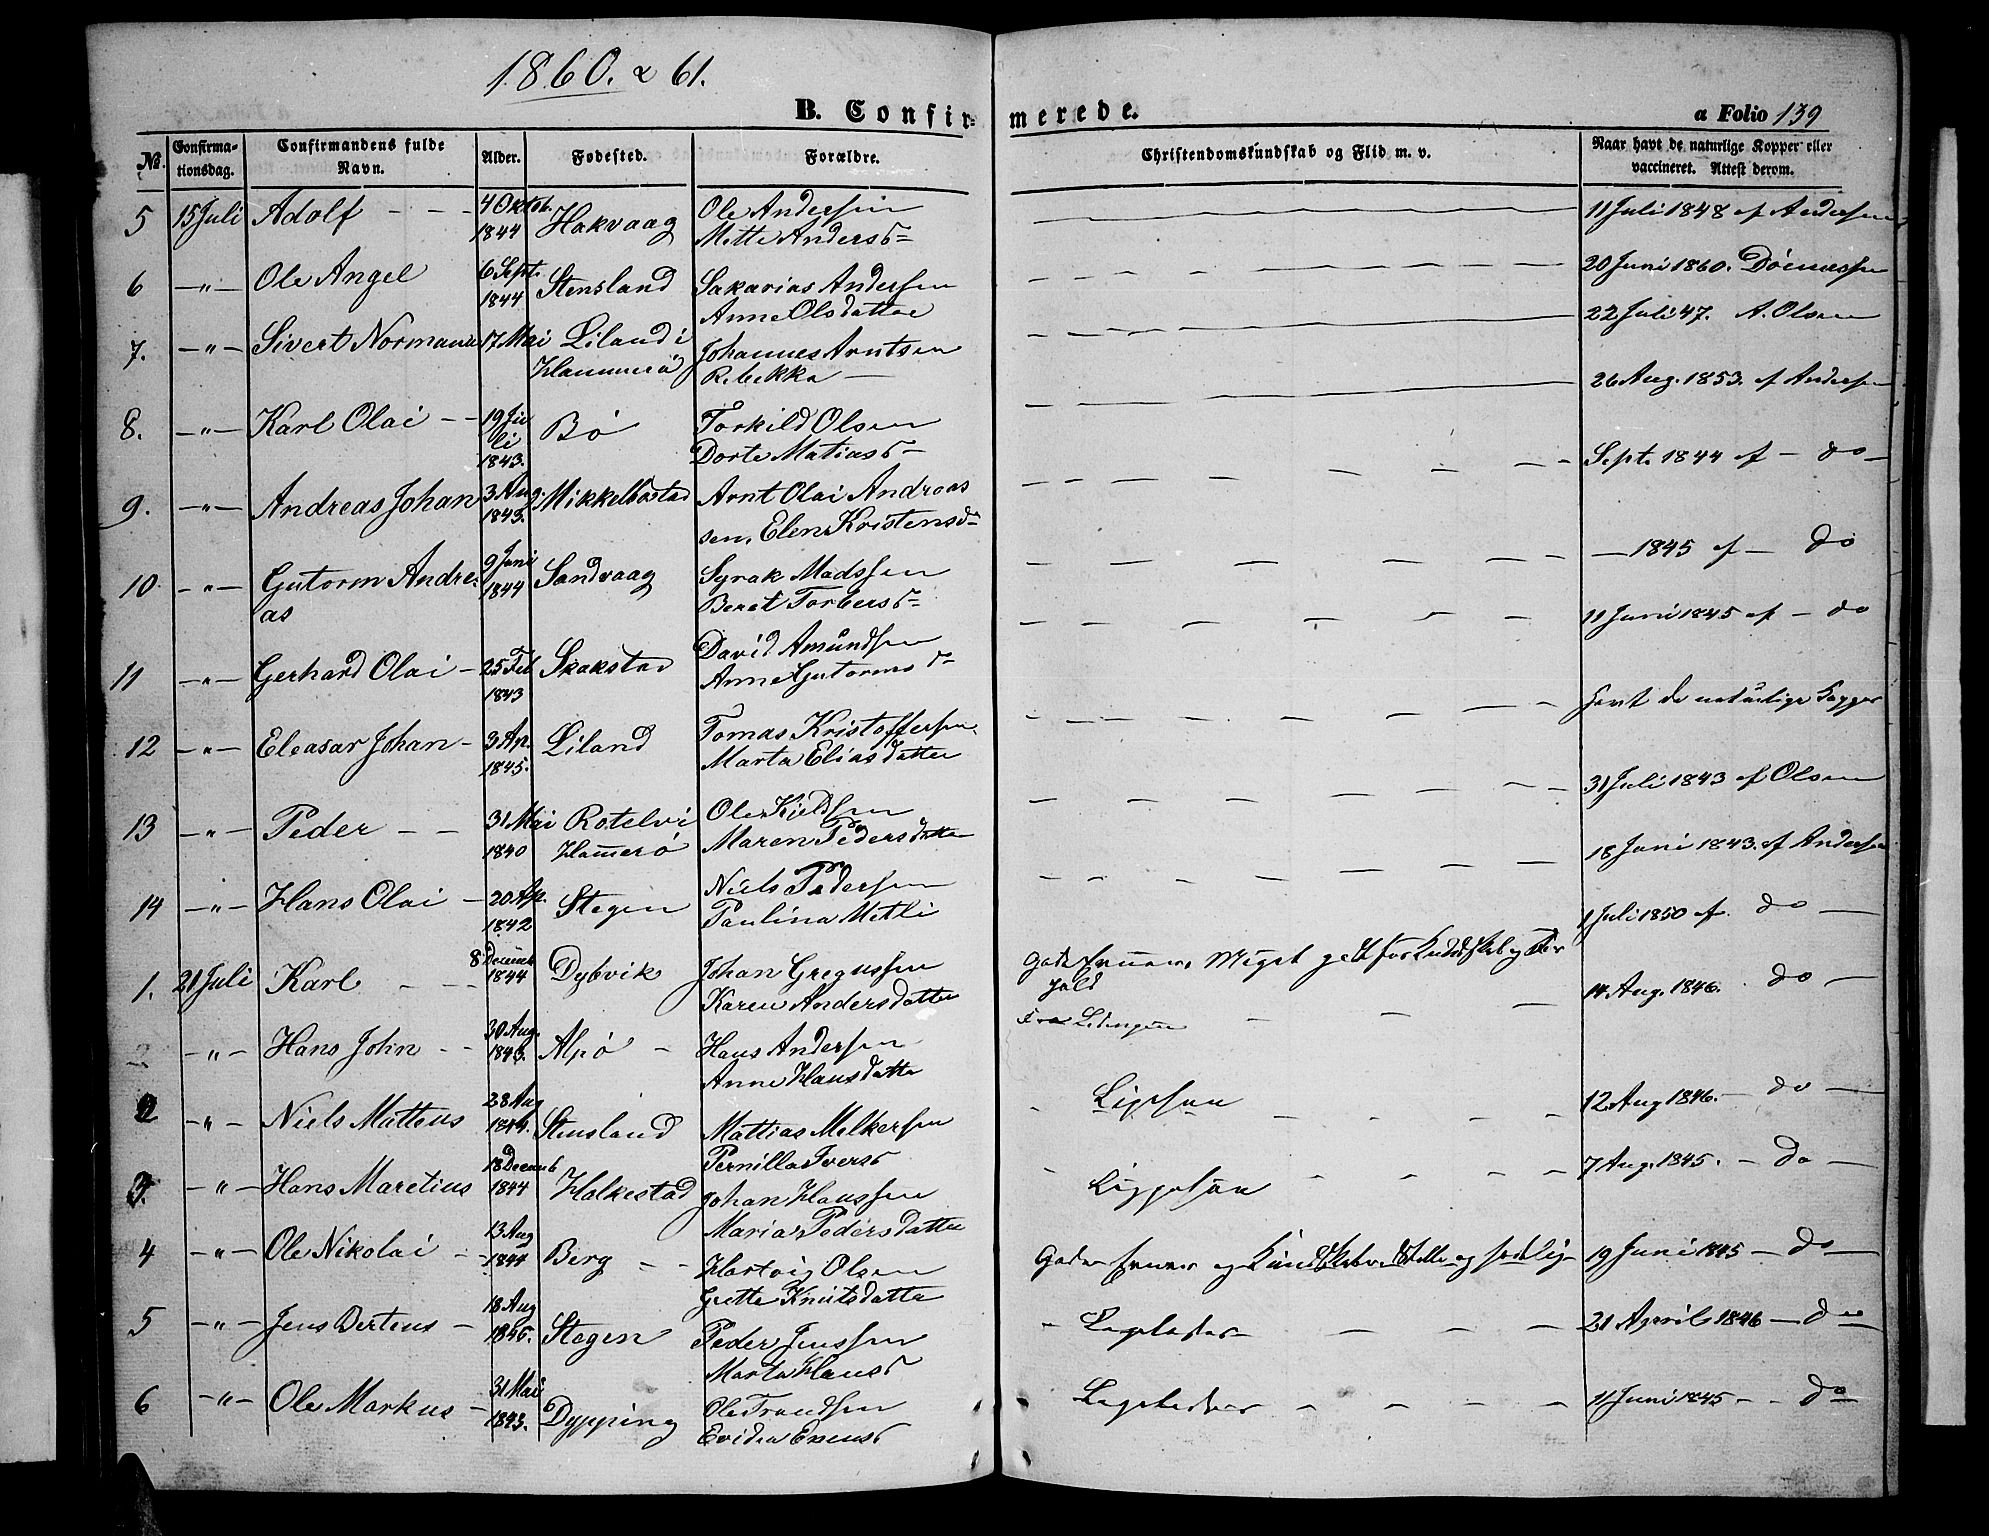 1860. & 61.
B. Confirmerede.
a Folio 139
No. Confirmationsdag. Confirmandens fulde Navn. Alder. Fødested. Forældre. Christendomskundskab og Flid m. v. Naar havt de naturlige Kopper eller vaccineret. Attest derom.
5 15 Juli Adolf - - - 4 Oktob. 1844 Hakvaag Ole Andersen Mette Andersd= 11 Juli 1848 af Andersen
6 -"- Ole Angel 6 Sept. 1844 Stensland Sakarias Andersen Anne Olsdatter 20 Juni 1860.
7. -"- Sivert Normann 17 Mai Liland i Hammerø Johannes Arntsen Rebekka - 22 Juli 47. A. Olsen
8. -"- Karl Olai - 19 Juli 1843. Bø Torkild Olsen Dorte Matiasd- 26 Aug. 1853. af Andersen
9. -"- Andreas Johan 3 Aug. 1843. Mikkelbostad Arnt Olai Andreassen, Elen Kristensd= Sept. 1844 af - do -
10. -"- Gutorm Andreas 9 Juni 1844 Sandvaag Syrak Madssen Beret Torbersd= - 1845 af - do
11 -"- Gerhard Olai - 25 Feb 1843 Skakstad David Amundsen Anne Gutormsd= 11 Juni 1845 af - do
12 -"- Eleasar Johan - 3 Ap. 1845. Liland Tomas Kristoffersen. Marta Eliasdatter havt de naturlige Kopper
13 -"- Peder - - 31 Mai 1840 Rotelvi Hamerø Ole Kjeldsen Maren Pedersdatter 31 Juli 1843 af Olsen
14 -"- Hans Olai - 20 Ap. 1842 Stegen Niels Pedersen Paulina Metli 18 Juni 1843. af Andersen
1 Juli 1850 af. do -
1. 21 Juli Karl - - 8 Decemb 1844 Dybvik Johan Gregussen Karen Andersdatter Gode Evner. Meget godt for Kundskab og Forhold 14 Aug. 1846. do -
2 -"- Hans John - - 30 Aug. 1843. Alpø - Hans Andersen Anne Hansdatter Fra Lødingen
2 -"- Niels Matteus 28 Aug 1844. Stensland Mattias Melkersen Pernilla Iversd Ligesaa 12 Aug 1846. - do -
3. -"- Hans Maretius 18 Decemb 1844 Halkestad Johan Hanssen Maria Pedersdatter Ligesaa 7 Aug. 1845. - do -
4 -"- Ole Nikolai - 13 Aug 1844 Berg - - Hartvig Olsen Grette Knutsdatter Gode Evner og Kundskaber. Stille og sædelig 19 Juni 1845 - do -
5 -"- Jens Berteus - 18 Aug 1845. Stegen Peder Jenssen Marta Hansd Ligeledes 21 April 1846 - do
6 -"- Ole Markus - 31 Mai 1843. Dypping Ole Trondsen Evidea Enensd Ligeledes 11 Juni 1845 - - do